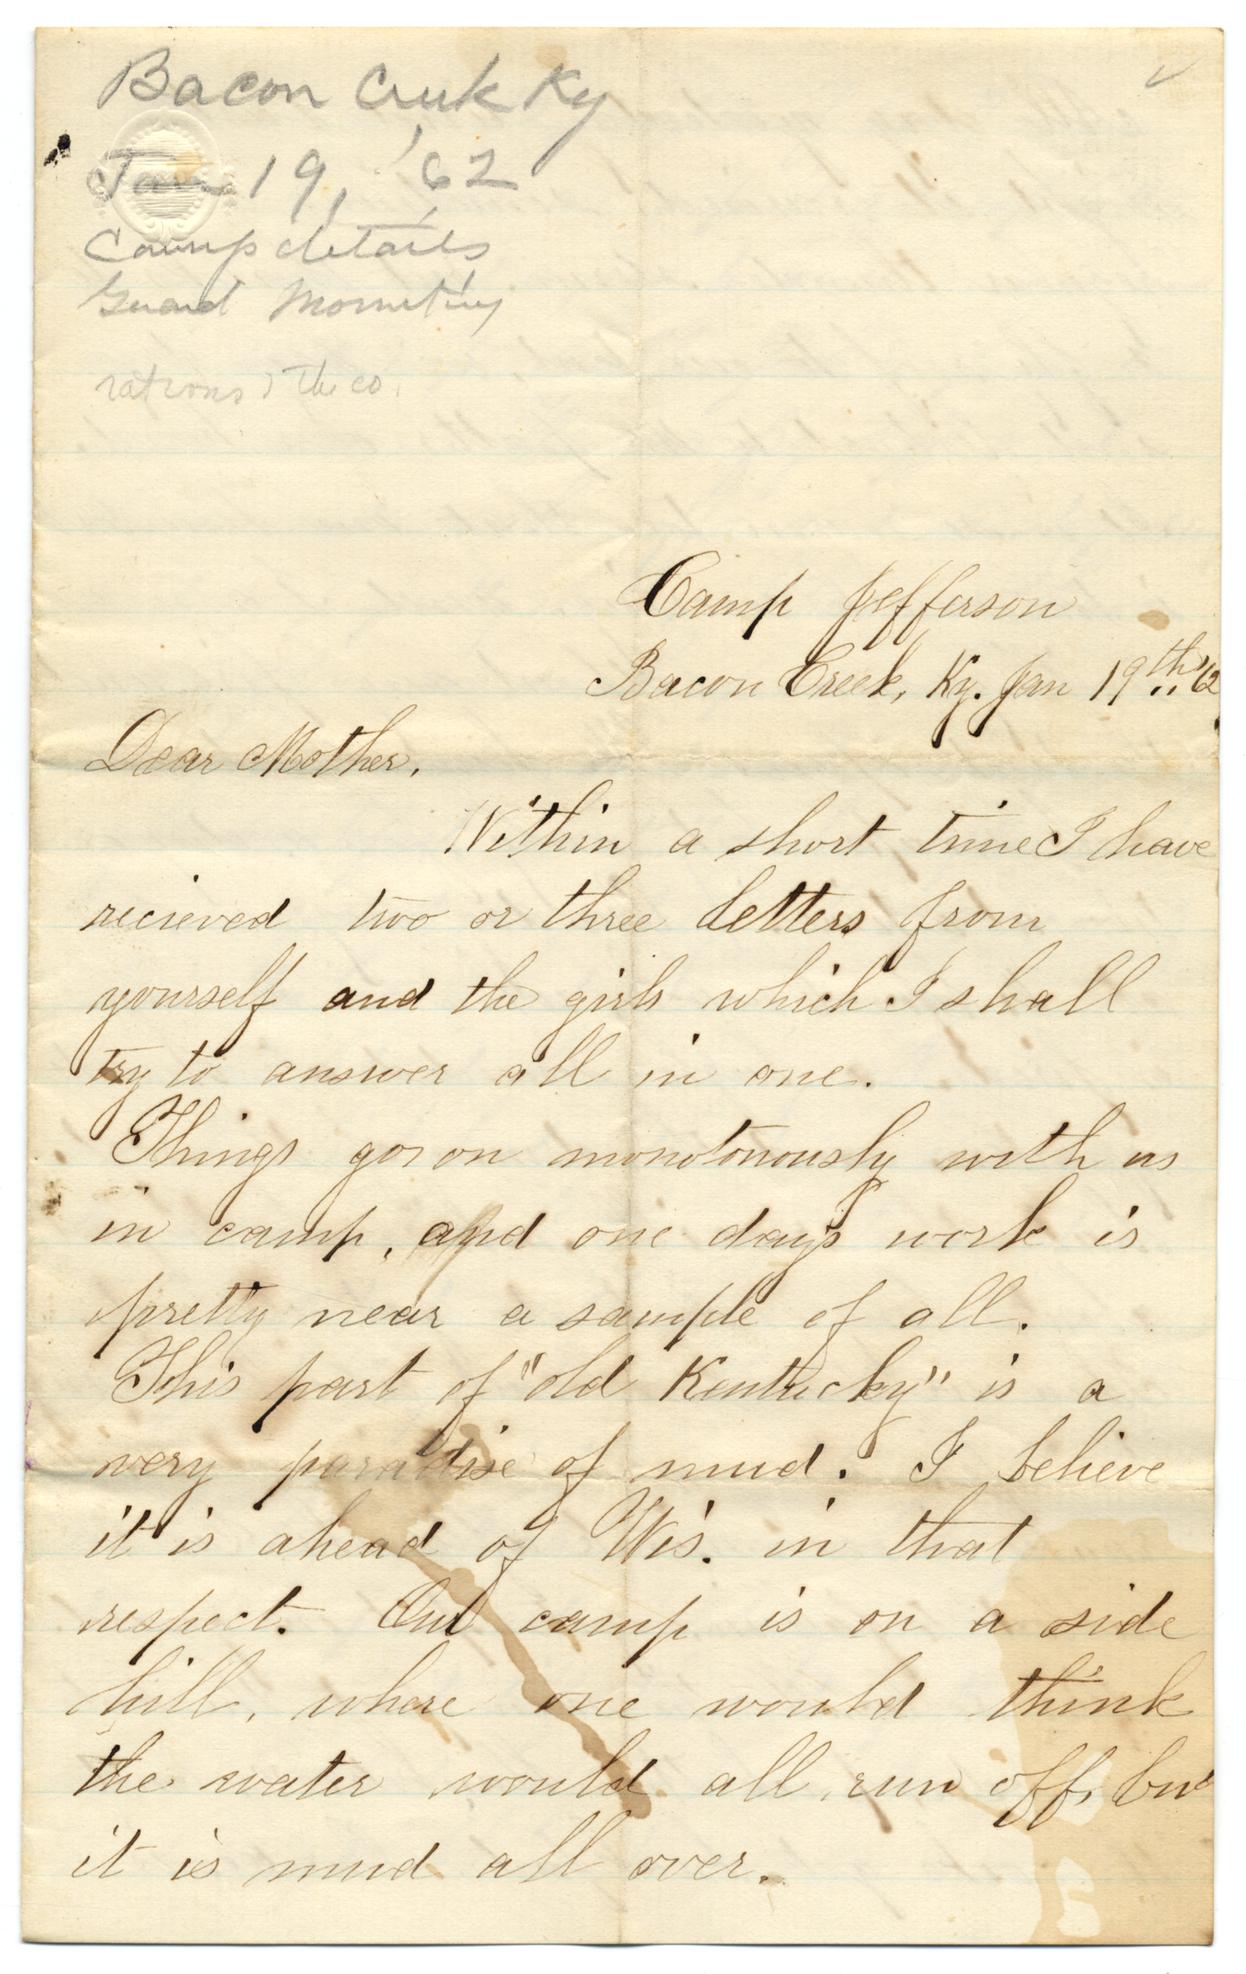 Bacon Creek Ky
Jan 19, '62
Camp details
Guard Mounting
rations, the co.
Camp Jefferson
Bacon Creek, Ky. Jan 19th '62
Dear Mother.
Within a short time I have
recieved two or three letters from
yourself and the girls which I shall
try to answer all in one.
Things goes on monotonously with us
in camp, and one day's work is
pretty near a sample of all.
This part of "old Kentucky" is a
very paradise of mud. I believe
it is ahead of Wis. in that
respect. Our camp is on a side
hill, where one would think
the water would all run off, but
it is mud all over.